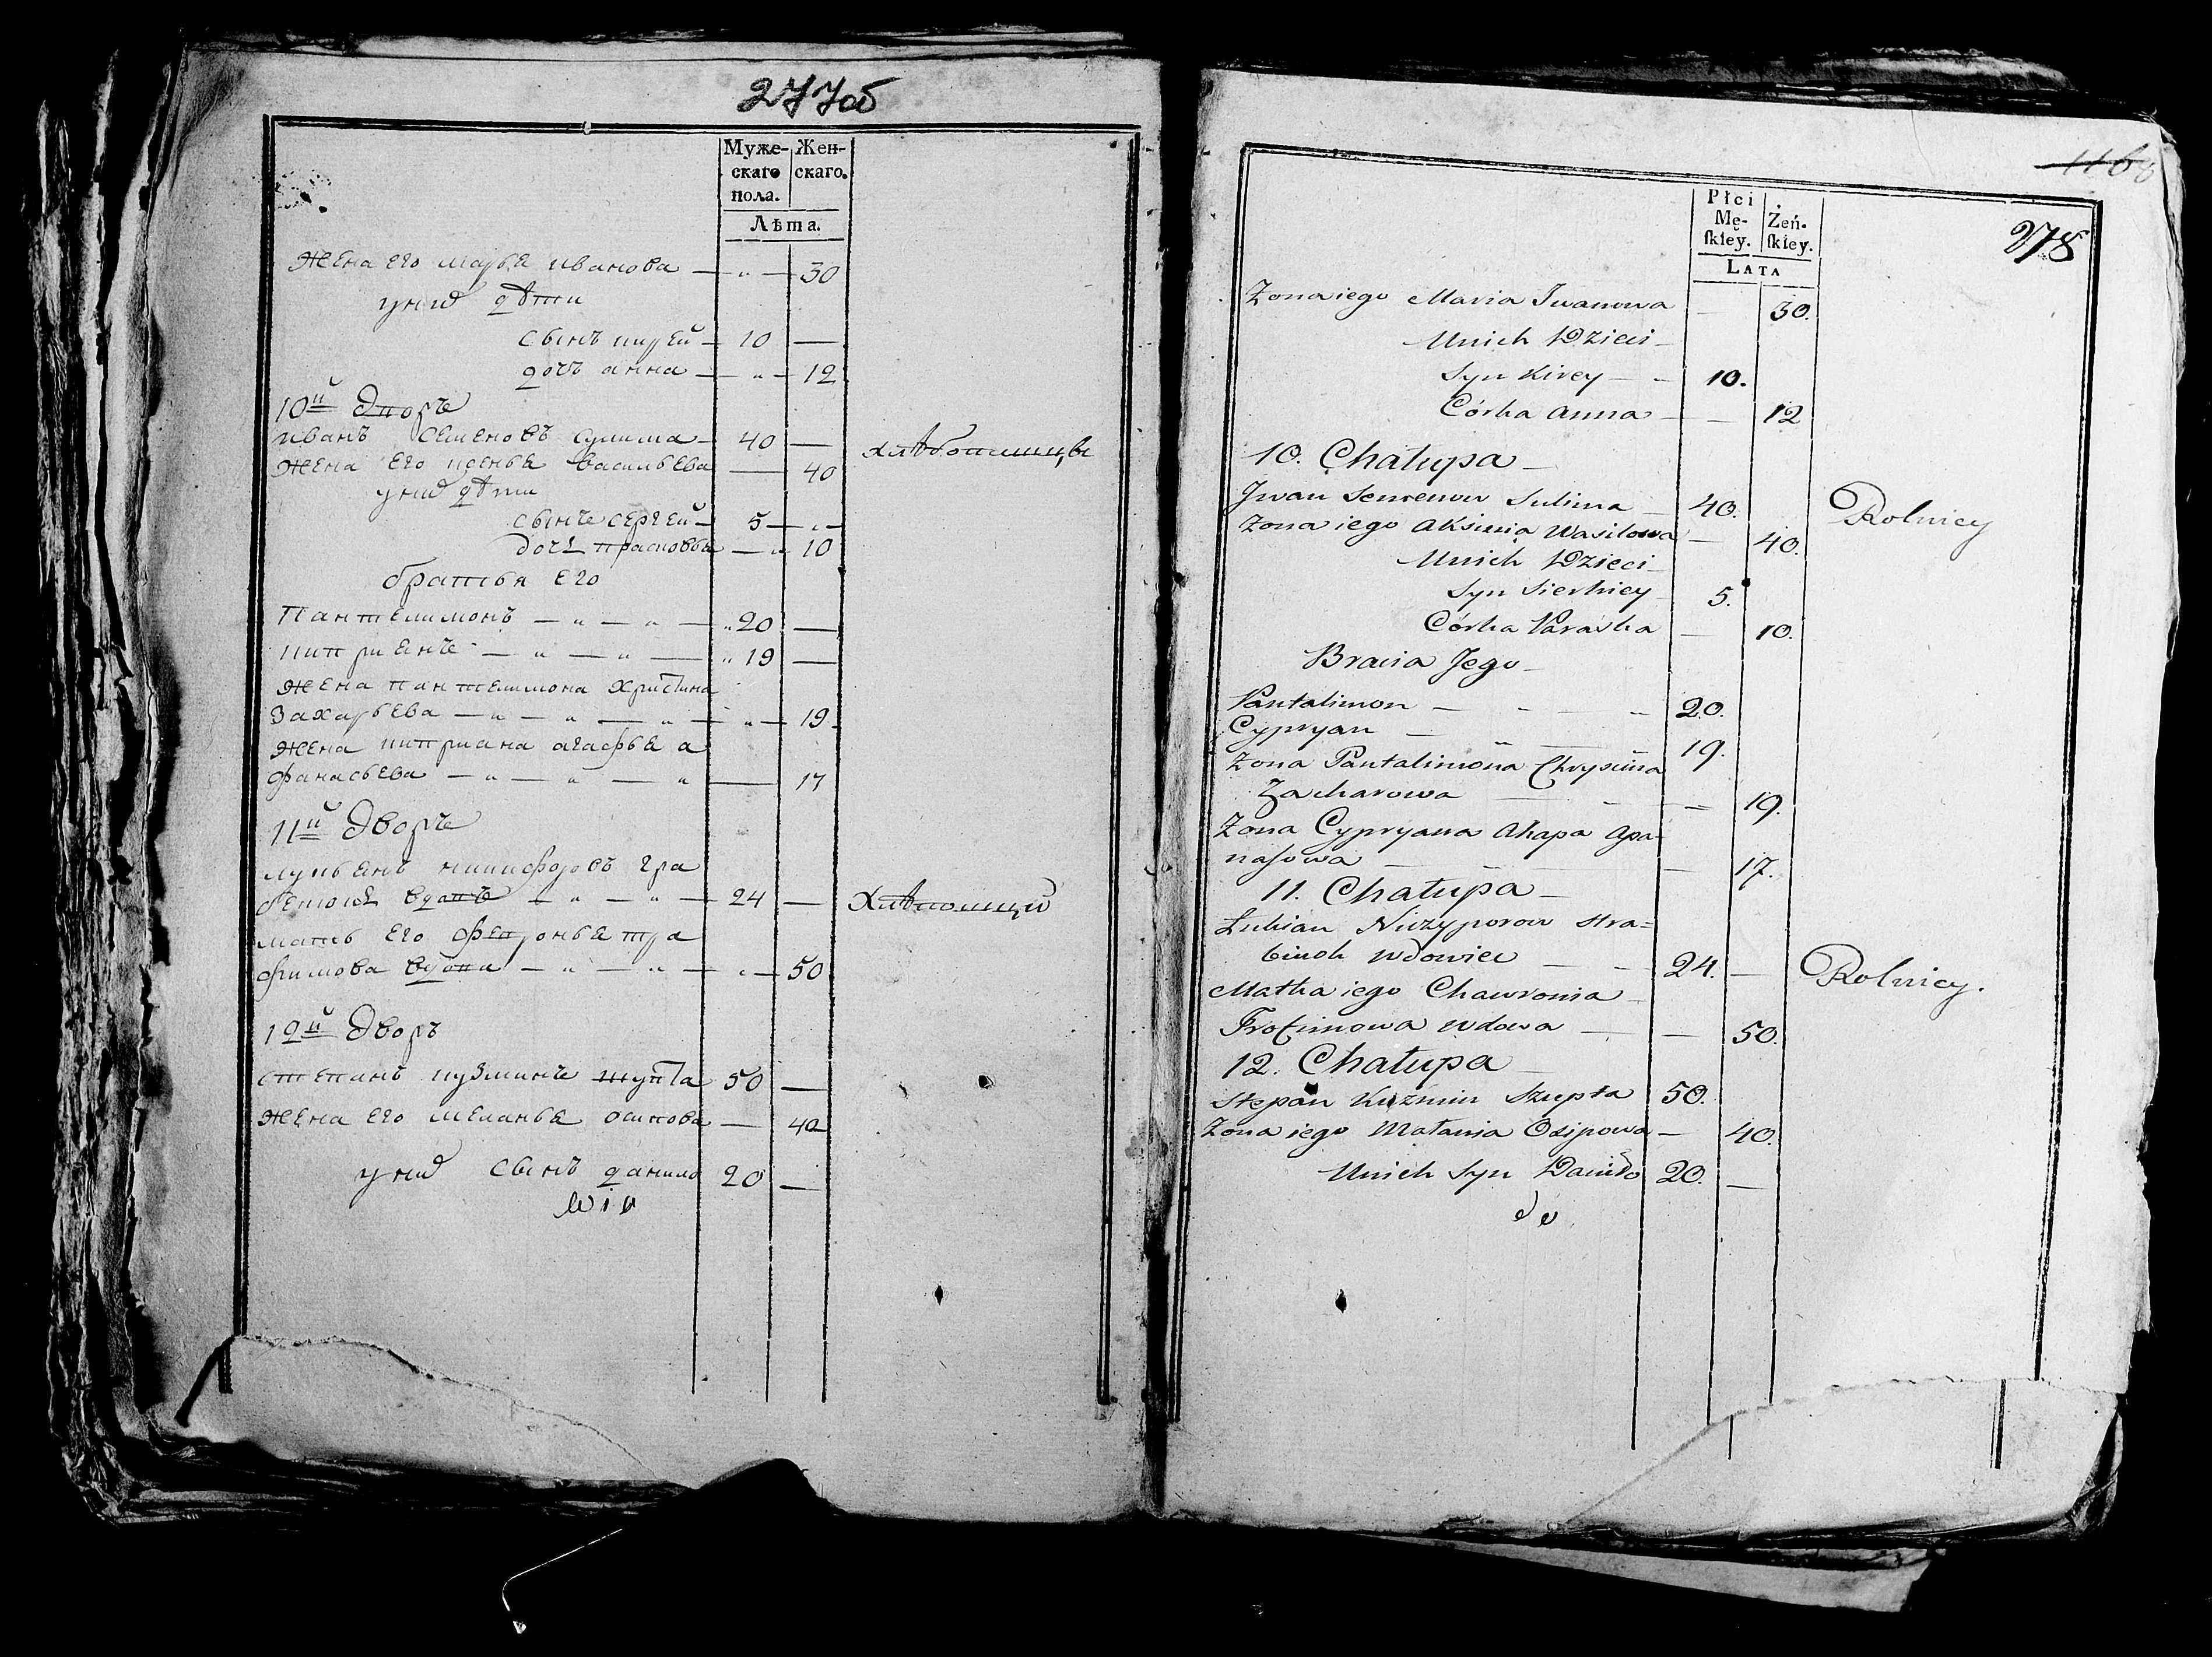 277об
Муже- Жен-
скаго скаго.
пола.
Лѣта.
Жена его марья иванова — „ — 30
у них дѣти
сынъ кирей — 10 —
дочь анна — „ — 12
10й Дворъ
иванъ семеновъ сулима — 40 — хлѣбопашцы
жена его ксенья васильева — 40
у них дѣти
сынъ сергей — 5 — „ —
дочь прасковья — „ 10
братья его
Пантелимонъ — „ — „ — „ 20 —
киприянъ — „ — „ — „ 19 —
жена пантелимона христина
Захарьева — „ — „ — „ — „ — 19
жена киприана агафья а
фанасьева — „ — „ — „ — 17
11й Дворъ
лукьянъ никифоровъ гра
вдовъ — „ — „ — 24 —
мать его февронья тра
фимова вдова — „ — „ — „ — 50
12й Дворъ
степанъ кузминъ шупта 50 —
жена его меланья осипова — 40
у них сынъ данило 20 —
1168
278
Płci
Mę- Żeń-
skiey. skiey.
LATA
Zona iego Maria Iwanowa — 30.
U nich Dzieci —
Syn Kirey — 10.
Córka Anna — — 12
10. Chałupa —
Jwan Semenow Sulima — 40. Rolnicy
Zona iego Aksinia Wasilowa — 40.
U nich Dzieci
Syn Sierhiey 5.
Córka Paraska — 10.
Bracia Jego —
Pantalimon — „ — „ 20.
Cypryan — „ — 19.
Zona Pantalimona Chrystina
Zacharowa — — 19.
Zona Cypryana Ahapa Apa-
nasowa — — 17.
11. Chałupa —
Lukian Niczyporow Hra=
wdowiec — 24. — Rolnicy.
Matka iego Chawronia
Trofimowa wdowa — — 50.
12. Chałupa
Stepan Kuźmin Szupta 50.
Zona iego Małania Osipowa — 40.
U nich Syn Daniło 20. —